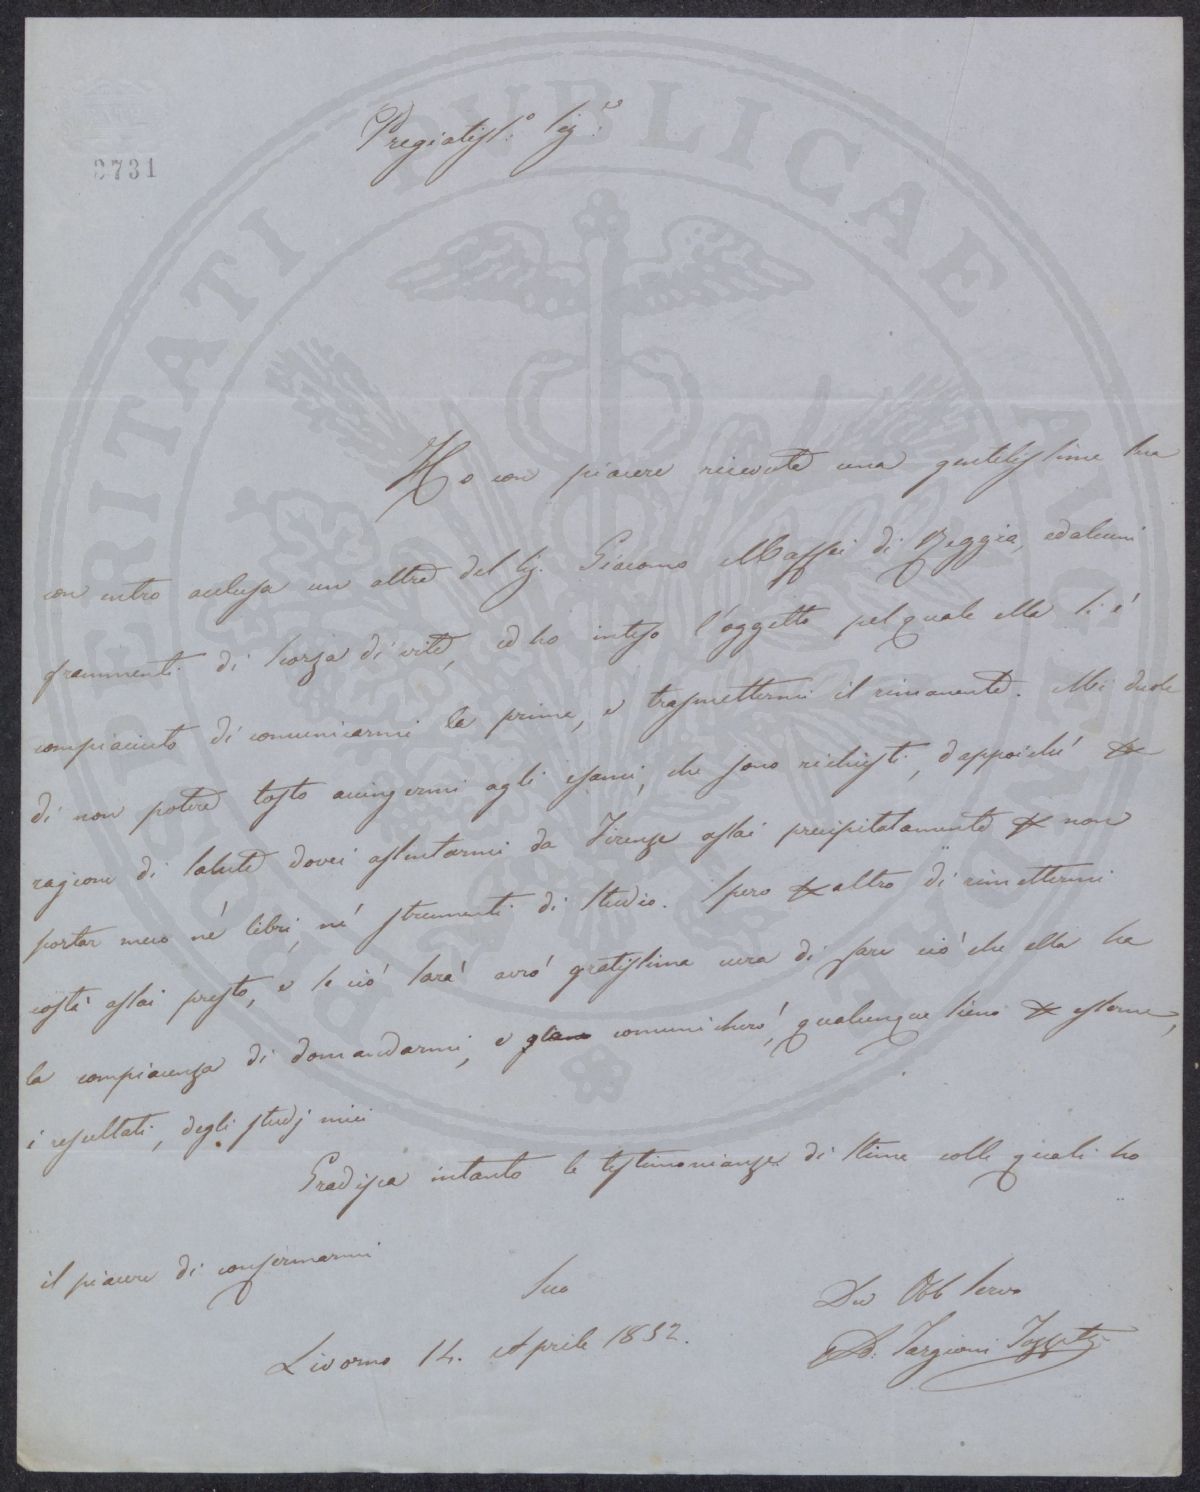 PROSPERITATI PUBLICAE AUGENDAE
3731
Pregiatiss.o Sig.re
Ho con piacere ricevuto una gentilissima sua
con entro acclusa un altra del Sig. Giacomo Maffei di Reggio, ed alcuni
frammenti di scorza di vite, ed ho inteso l'oggetto pel quale ella si è
compiaciuto di comunicarmi la prima, e trasmettermi il rimanente. Mi duole
di non potere tosto accingermi agli esami, che sono richiesti, dappoiché per
ragione di salute dovei assentarmi da Firenze assai precipitatamente e non
portar meco né libri, né strumenti di studio. Spero per altro di rimettermi
costà assai presto, e se ciò sarà avrò gratissima cura di fare ciò che ella ha
la compiacenza di domandarmi, e comunicherò, qualunque sieno per essere,
i resultati, degli studj miei
Gradisca intanto le testimonianze di stima colle quali ho
il piacere di confermarmi
Suo
Dev Obb Servo
Livorno 14. Aprile 1852.
Targioni Tozzetti